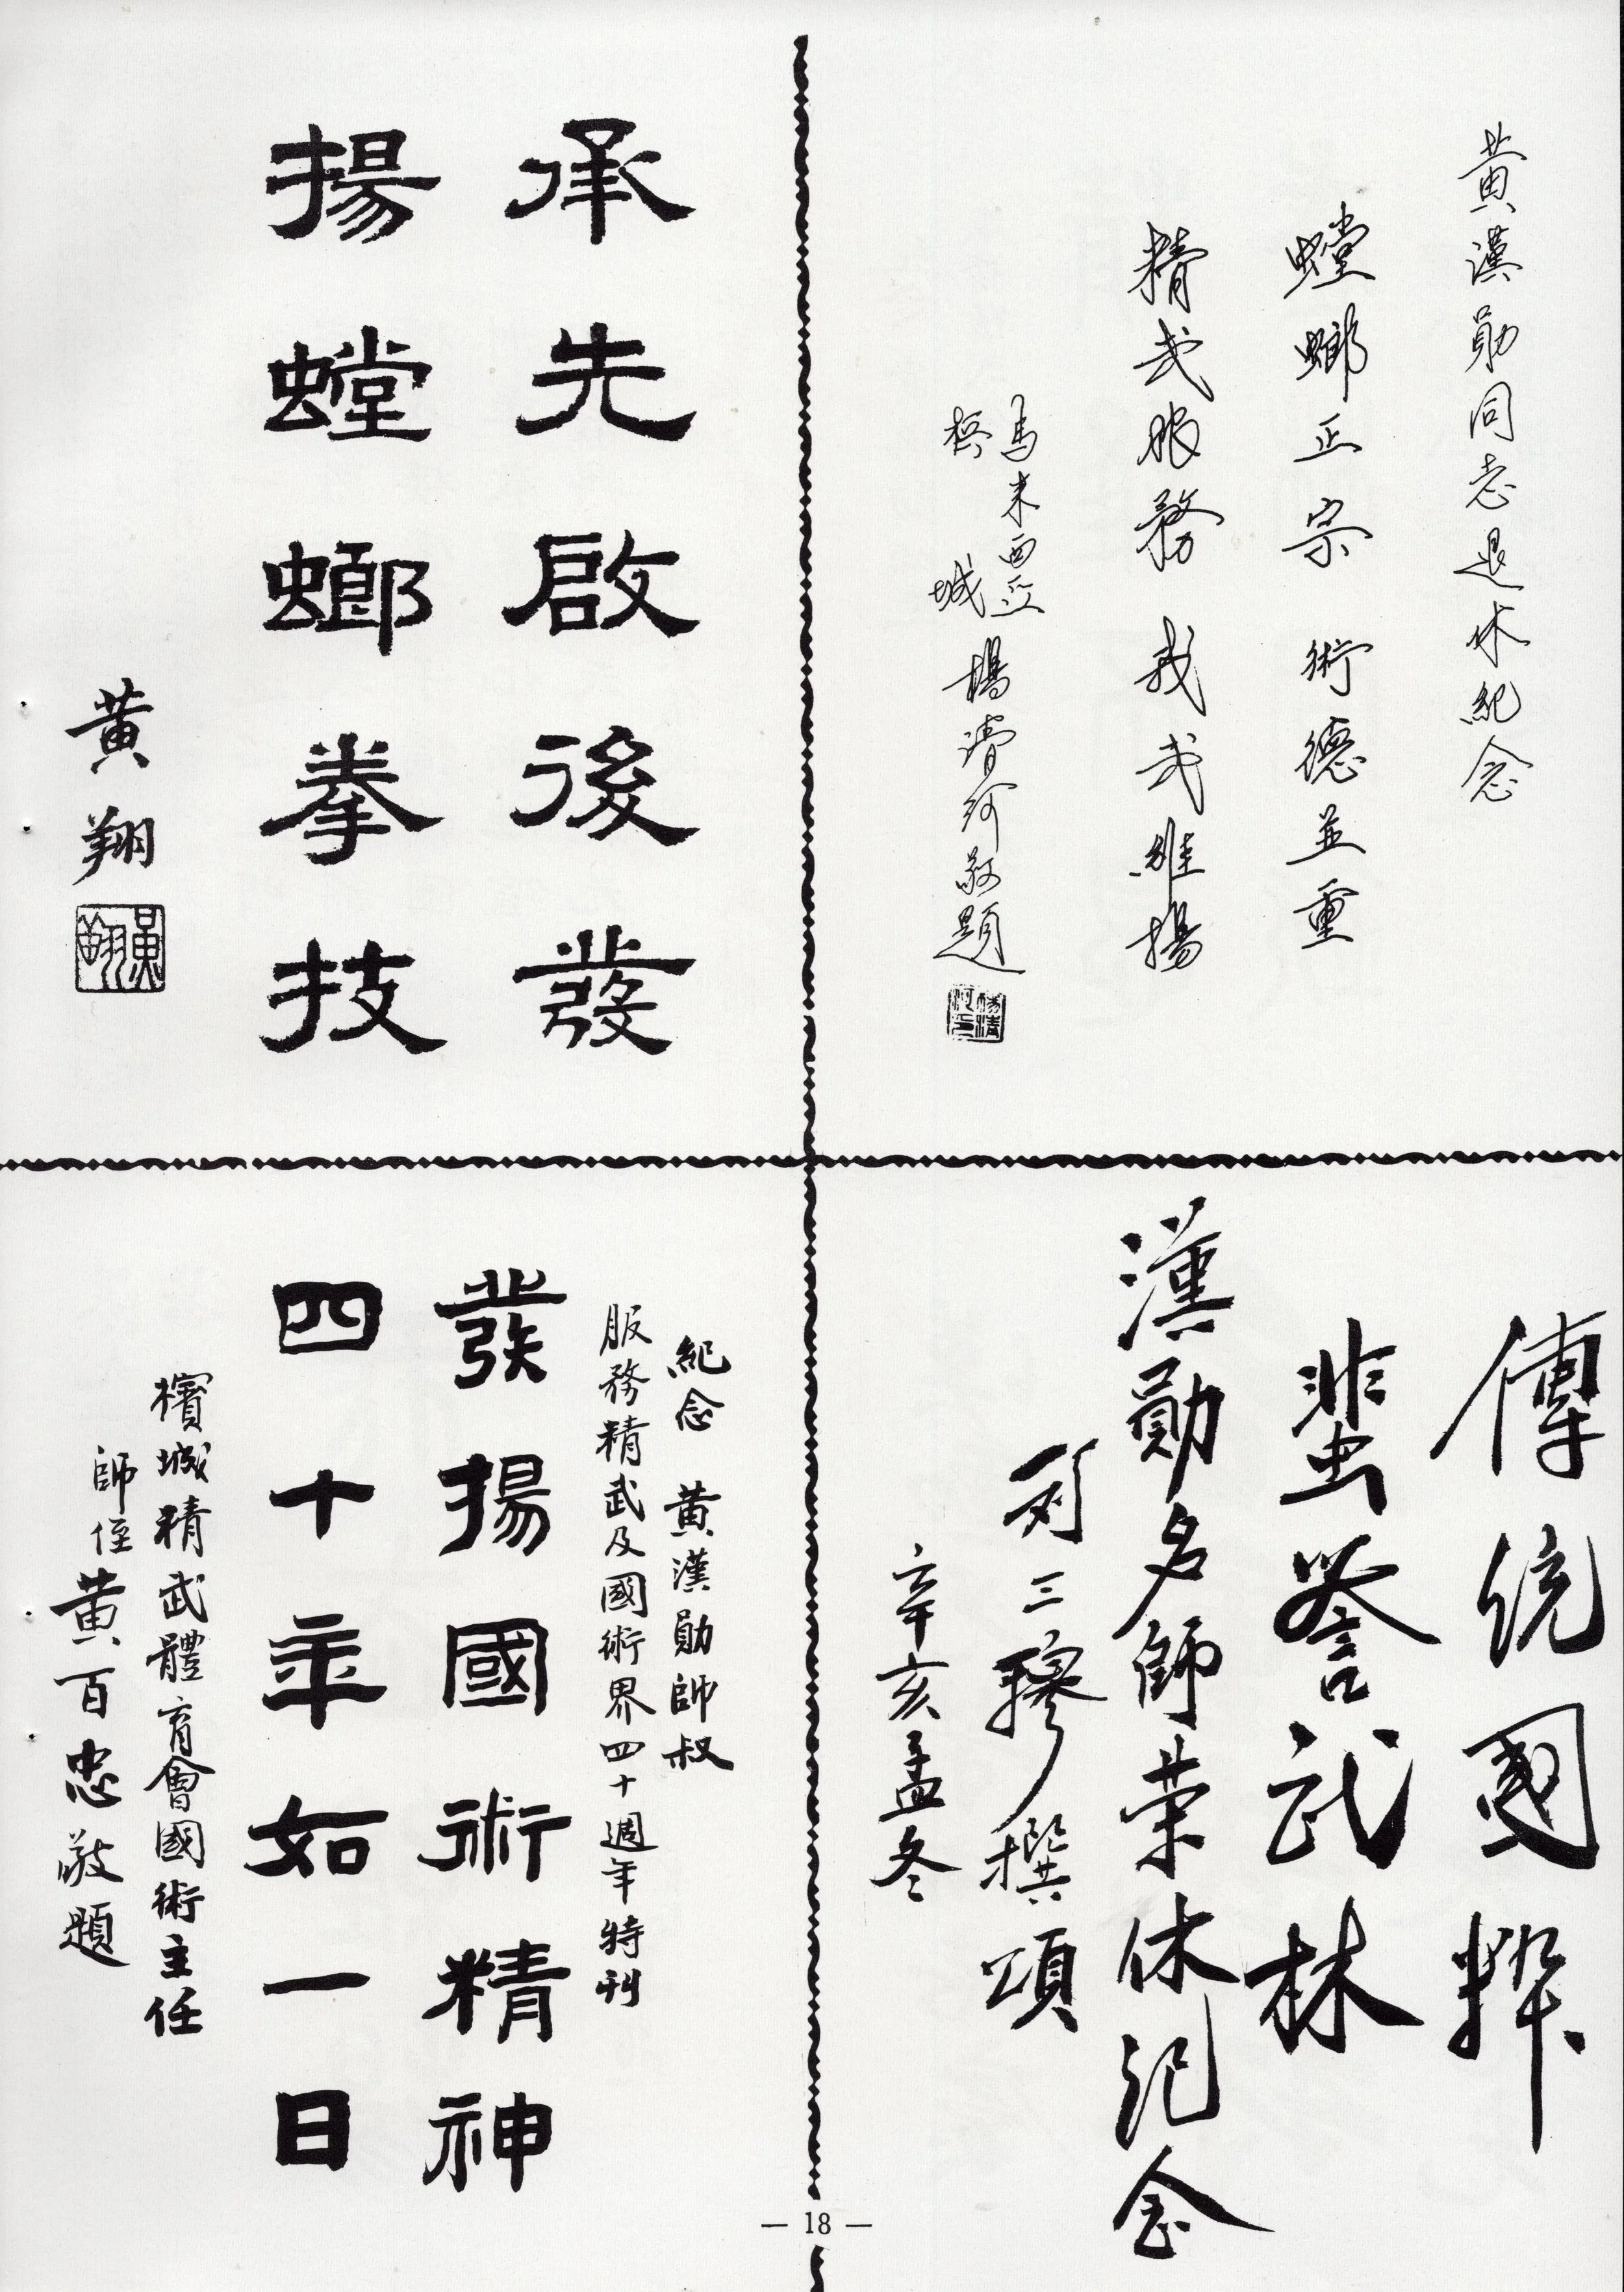 黃漢勛同志退休紀念
螳螂正宗 術德並重
精武服務 我武維揚
馬來西亞
檳城
楊清河敬題
承先啟後發
揚螳螂拳技
黃翔
黃翔
傳統國粹
蜚譽武林
漢勛名師榮休紀念
三穆撰頌
辛亥孟冬
紀念 黃漢勛師叔
服務精武及國術界四十週年特刊
發揚國術精神
四十年如一日
檳城精武體育會國術主任
師侄黃百忠敬題
— 18 —